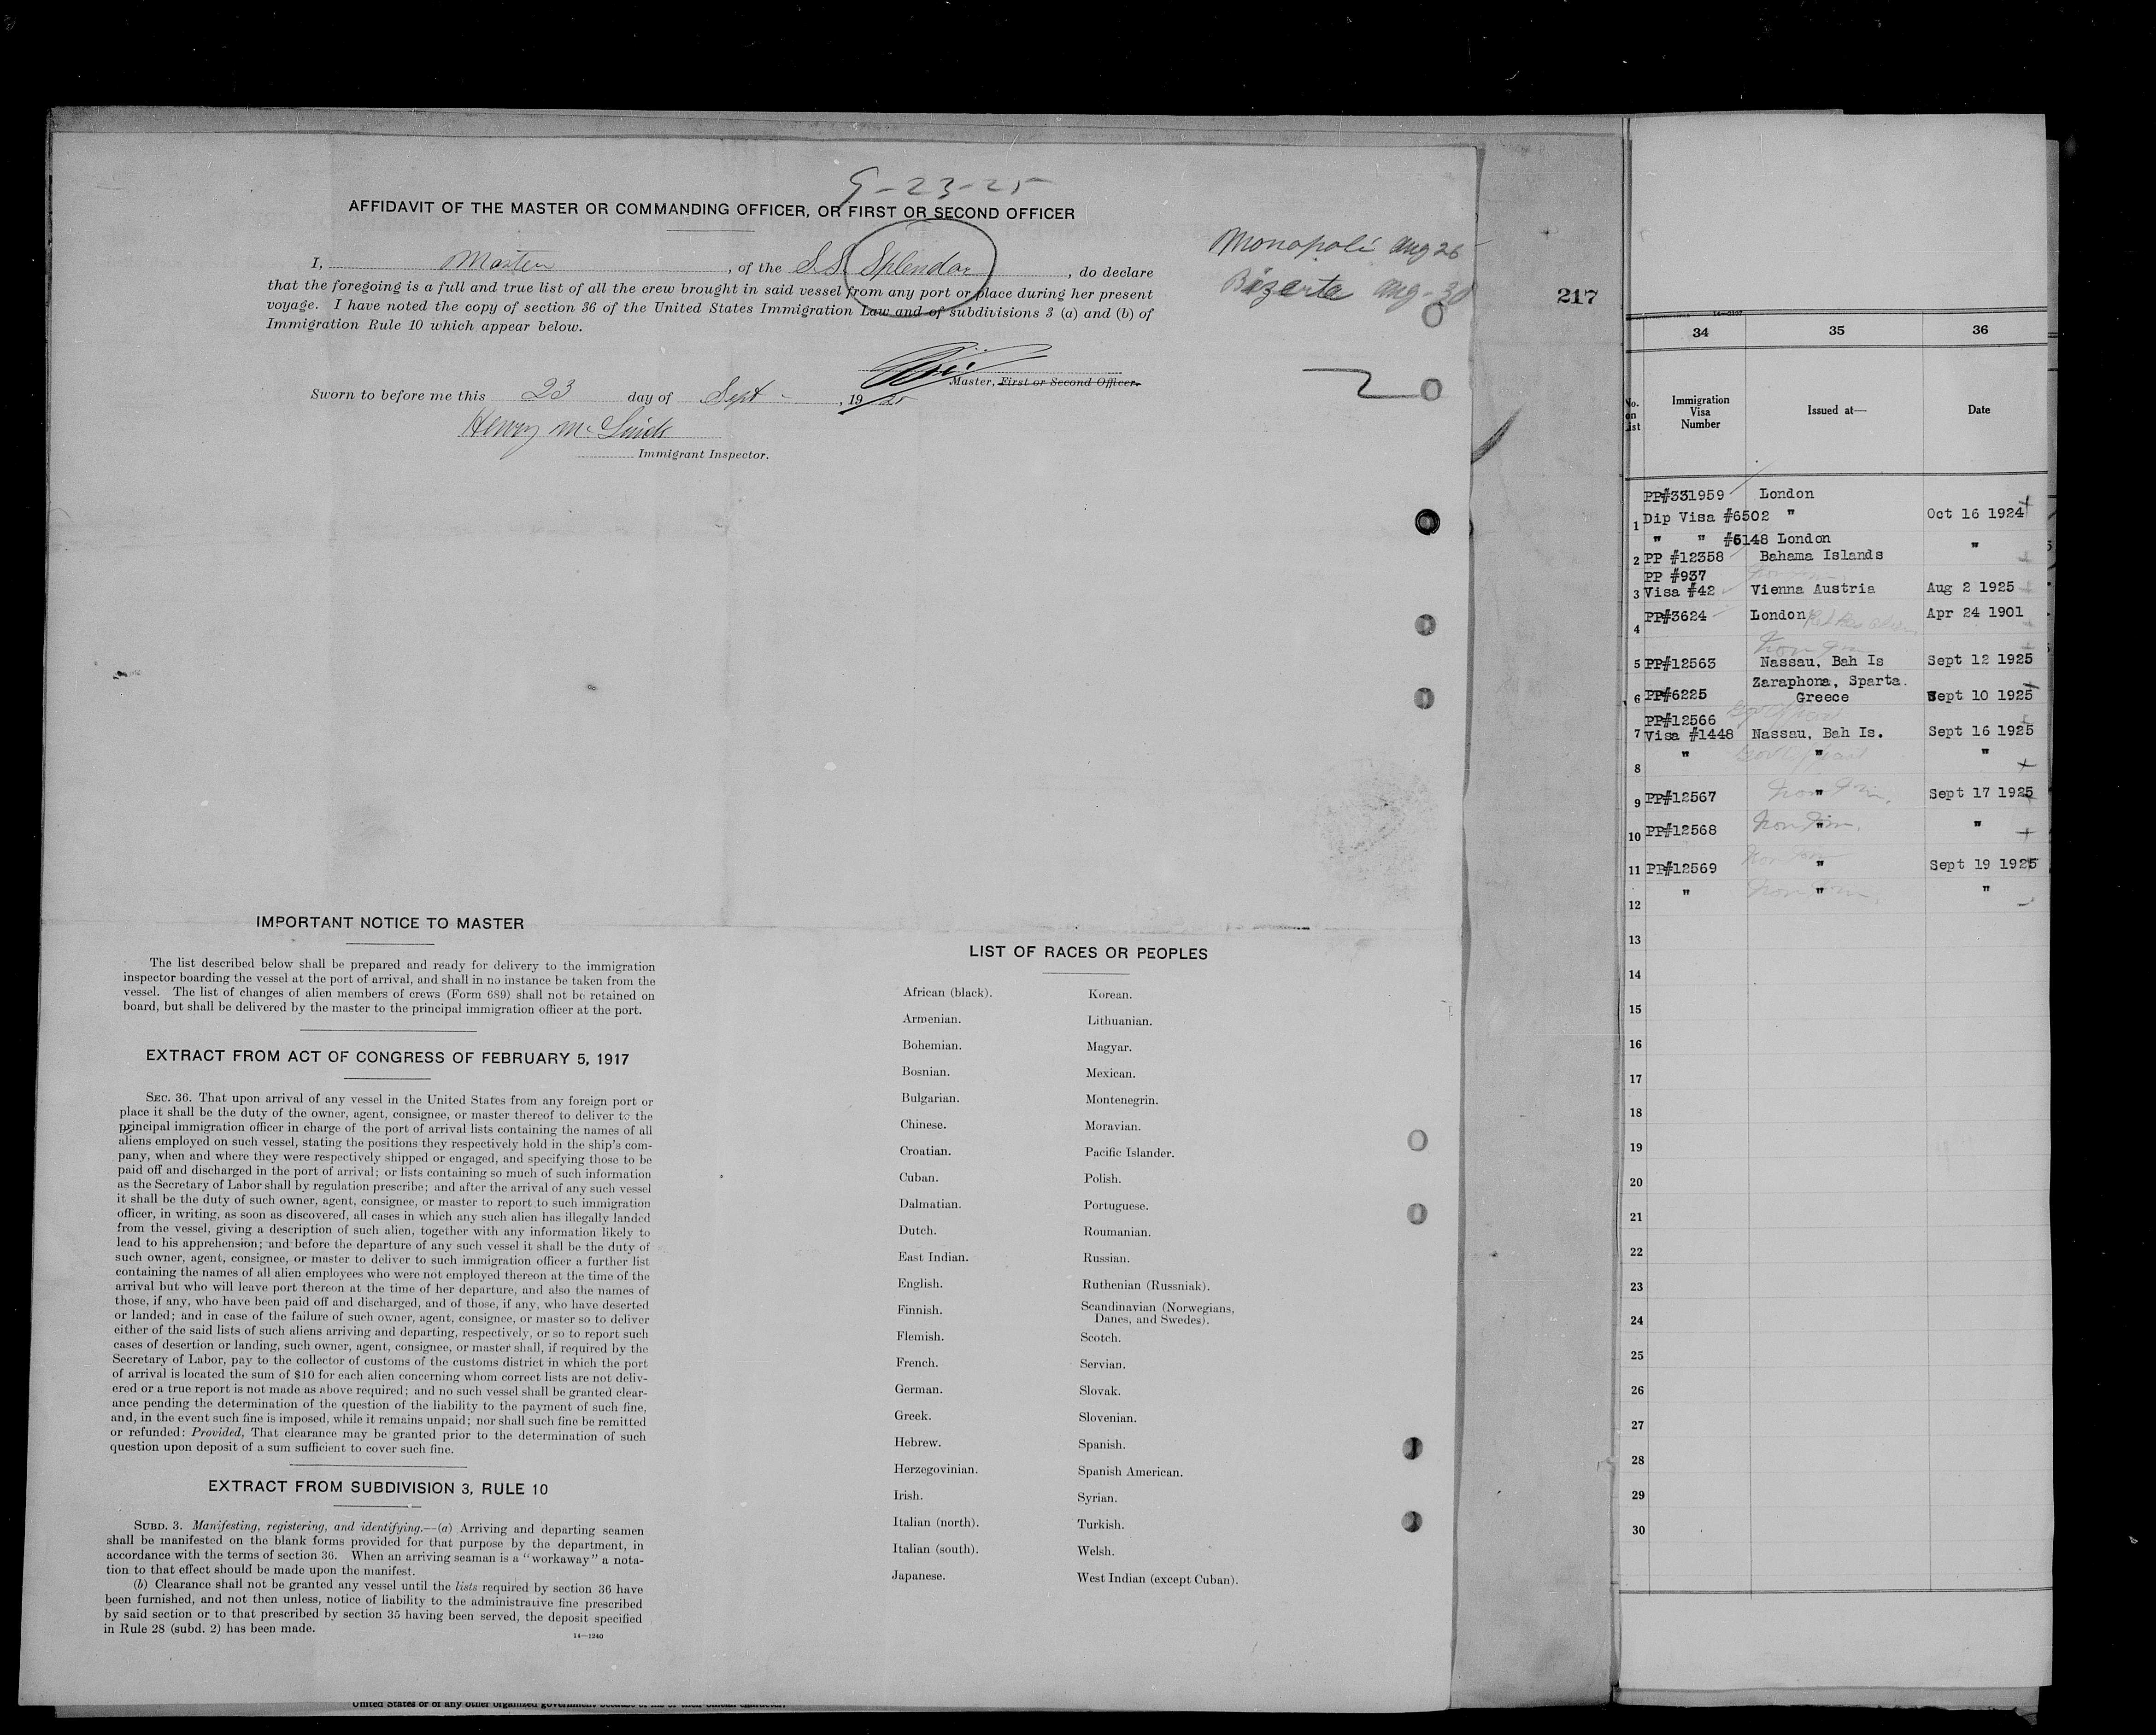 9-23-25
AFFIDAVIT OF THE MASTER OR COMMANDING OFFICER, OR FIRST OR SECOND OFFICER
I, Master, of the S.S. Splendor, do declare
that the foregoing is a full and true list of all the crew brought in said vessel from any port or place during her present
voyage. I have noted the copy of section 36 of the United States Immigration Law and of subdivisions 3 (a) and (b) of
Immigration Rule 10 which appear below.
Monopoli Aug 26
Bizerta Aug-30
Master, First or Second Officer.
Sworn to before me this 23 day of Sept, 1925
Henry Mc
Immigrant Inspector.
IMPORTANT NOTICE TO MASTER
The list described below shall be prepared and ready for delivery to the immigration
inspector boarding the vessel at the port of arrival, and shall in no instance be taken from the
vessel. The list of changes of alien members of crews (Form 689) shall not be retained on
board, but shall be delivered by the master to the principal immigration officer at the port.
EXTRACT FROM ACT OF CONGRESS OF FEBRUARY 5, 1917
SEC. 36. That upon arrival of any vessel in the United States from any foreign port or
place it shall be the duty of the owner, agent, consignee, or master thereof to deliver to the
principal immigration officer in charge of the port of arrival lists containing the names of all
aliens employed on such vessel, stating the positions they respectively hold in the ship's com-
pany, when and where they were respectively shipped or engaged, and specifying those to be
paid off and discharged in the port of arrival; or lists containing so much of such information
as the Secretary of Labor shall by regulation prescribe; and after the arrival of any such vessel
it shall be the duty of such owner, agent, consignee, or master to report to such immigration
officer, in writing, as soon as discovered, all cases in which any such alien has illegally landed
from the vessel, giving a description of such alien, together with any information likely to
lead to his apprehension; and before the departure of any such vessel it shall be the duty of
such owner, agent, consignee, or master to deliver to such immigration officer a further list
containing the names of all alien employees who were not employed thereon at the time of the
arrival but who will leave port thereon at the time of her departure, and also the names of
those, if any, who have been paid off and discharged, and of those, if any, who have deserted
or landed; and in case of the failure of such owner, agent, consignee, or master so to deliver
either of the said lists of such aliens arriving and departing, respectively, or so to report such
cases of desertion or landing, such owner, agent, consignee, or master shall, if required by the
Secretary of Labor, pay to the collector of customs of the customs district in which the port
of arrival is located the sum of $10 for each alien concerning whom correct lists are not deliv-
ered or a true report is not made as above required; and no such vessel shall be granted clear-
ance pending the determination of the question of the liability to the payment of such fine,
and, in the event such fine is imposed, while it remains unpaid; nor shall such fine be remitted
or refunded: Provided, That clearance may be granted prior to the determination of such
question upon deposit of a sum sufficient to cover such fine.
EXTRACT FROM SUBDIVISION 3, RULE 10
SUBD. 3. Manifesting, registering, and identifying.—(a) Arriving and departing seamen
shall be manifested on the blank forms provided for that purpose by the department, in
accordance with the terms of section 36. When an arriving seaman is a "workaway" a nota-
tion to that effect should be made upon the manifest.
(b) Clearance shall not be granted any vessel until the lists required by section 36 have
been furnished, and not then unless, notice of liability to the administrative fine prescribed
by said section or to that prescribed by section 35 having been served, the deposit specified
in Rule 28 (subd. 2) has been made.
14—1240
United States or of any other organized government because of his or their official character.
LIST OF RACES OR PEOPLES
African (black).
Armenian.
Bohemian.
Bosnian.
Bulgarian.
Chinese.
Croatian.
Cuban.
Dalmatian.
Dutch.
East Indian.
English.
Finnish.
Flemish.
French.
German.
Greek.
Hebrew.
Herzegovinian.
Irish.
Italian (north).
Italian (south).
Japanese.
Korean.
Lithuanian.
Magyar.
Mexican.
Montenegrin.
Moravian.
Pacific Islander.
Polish.
Portuguese.
Roumanian.
Russian.
Ruthenian (Russniak).
Scandinavian (Norwegians,
Danes, and Swedes).
Scotch.
Servian.
Slovak.
Slovenian.
Spanish.
Spanish American.
Syrian.
Turkish.
Welsh.
West Indian (except Cuban).
217
34 35 36
No. on List
Immigration Visa Number
Issued at—
Date
PP#331959 London
1 Dip Visa #6502 " Oct 16 1924
" " #6148 London
2 PP #12358 Bahama Islands "
PP #937
3 Visa #42 Vienna Austria Aug 2 1925
4 PP#3624 London Apr 24 1901
Non Im
5 PP#12563 Nassau, Bah Is Sept 12 1925
Zaraphona, Sparta.
6 PP#6225 Greece Sept 10 1925
PP#12566
7 Visa #1448 Nassau, Bah Is. Sept 16 1925
8 " " "
9 PP#12567 " Non Im. Sept 17 1925
10 PP#12568 " Non Im. "
11 PP#12569 " Non Im Sept 19 1925
12 " " Non Im. "
13
14
15
16
17
18
19
20
21
22
23
24
25
26
27
28
29
30